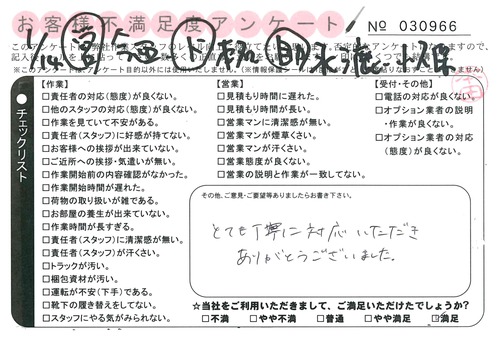 お客様不満足度アンケート
№ 030966
チェックリスト
【作業】
□責任者の対応(態度)が良くない。
□他のスタッフの対応(態度)が良くない。
□作業を見ていて不安がある。
□責任者(スタッフ)に好感が持てない。
□お客様への挨拶が出来ていない。
□ご近所への挨拶・気遣いが無い。
□作業開始前の内容確認がなかった。
□作業開始時間が遅れた。
□荷物の取り扱いが雑である。
□お部屋の養生が出来ていない。
□作業時間が長すぎる。
□責任者(スタッフ)に清潔感が無い。
□責任者(スタッフ)が汗くさい。
□トラックが汚い。
□梱包資材が汚い。
□運転が不安(下手)である。
□靴下の履き替えをしてない。
□スタッフにやる気がみられない。
【営業】
□見積もり時間に遅れた。
□見積もり時間が長い。
□営業マンに清潔感が無い。
□営業マンが煙草くさい。
□営業マンが汗くさい。
□営業態度が良くない。
□営業の説明と作業が一致してない。
【受付・その他】
□電話の対応が良くない。
□オプション業者の説明・作業が良くない。
□オプション業者の対応(態度)が良くない。
その他、ご意見・ご要望等ありましたらお書き下さい。
とても丁寧に対応いただき
ありがとうございました。
☆当社をご利用いただきまして、ご満足いただけたでしょうか?
□不満 □やや不満 □普通 □やや満足 □満足